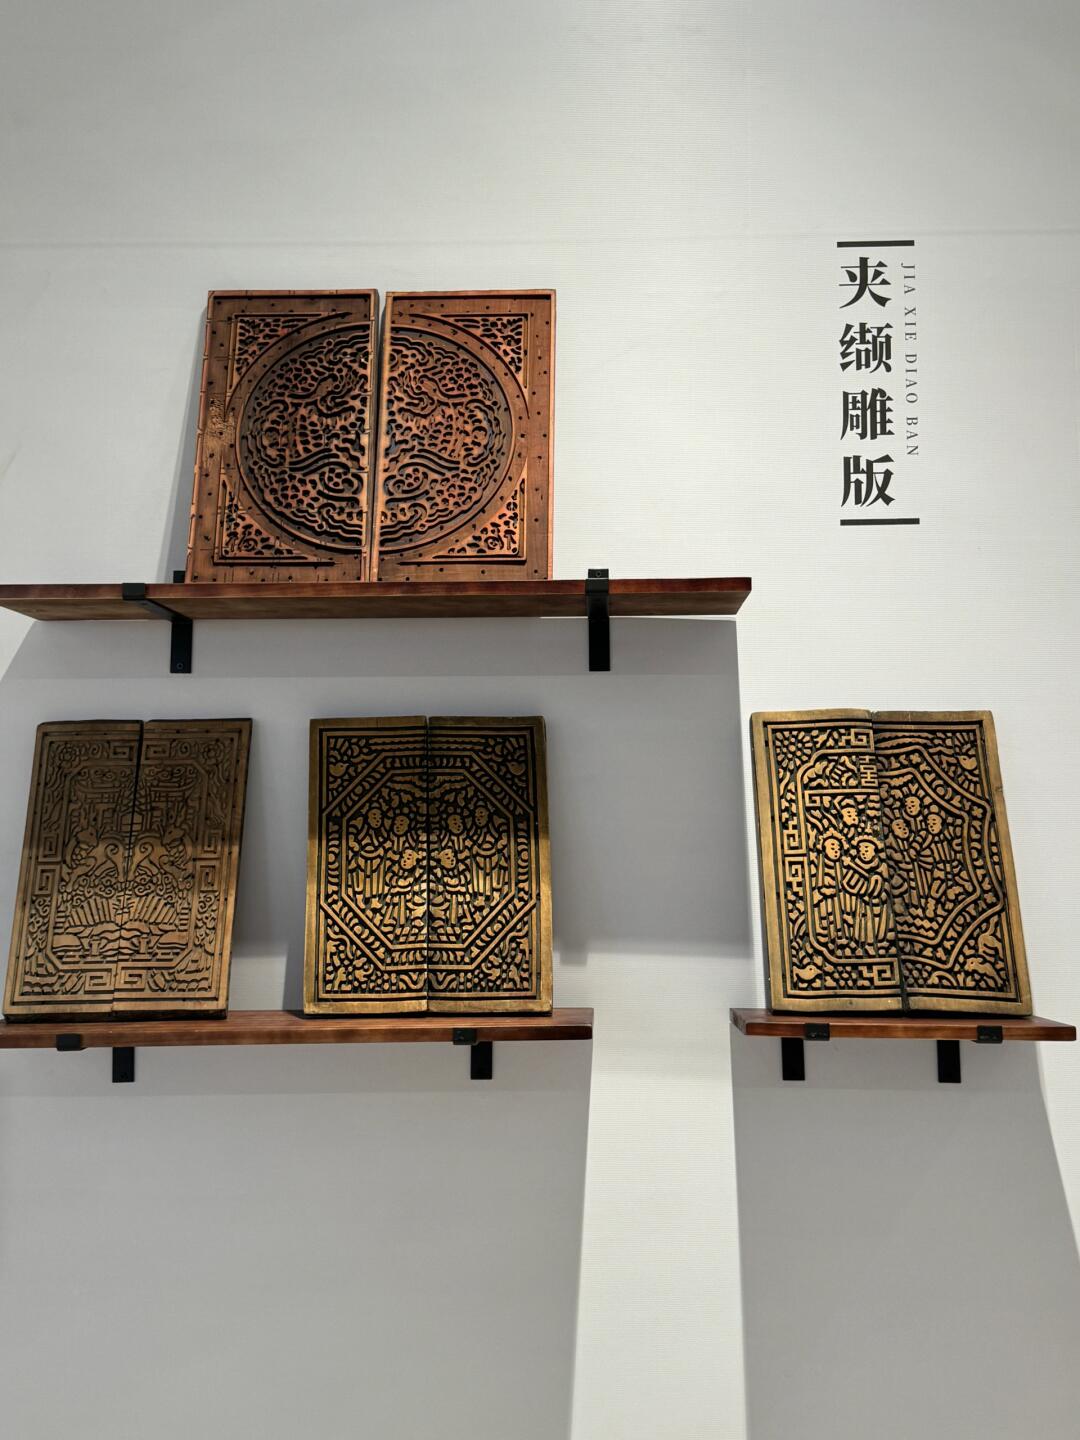 夹缬雕版
JIA XIE DIAO BAN
喜